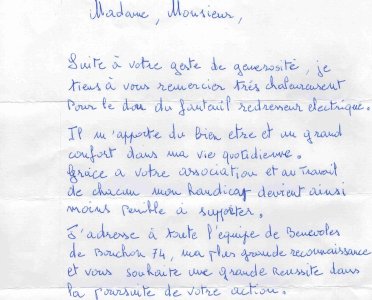 Madame, Monsieur,
Suite à votre geste de generosité, je
tiens à vous remercier très chaleureusement
Pour le don du fauteuil redresseur electrique.
Il m'apporte du bien etre et un grand
confort dans ma vie quotidienne.
Grâce a votre association et au Travail
de chacun mon handicap devient ainsi
moins penible à supporter.
J'adresse à toute l'équipe de Benevoles
de Bouchon 74, ma plus grande reconnaissance
et vous souhaite une grande Reussite dans
la poursuite de votre action.